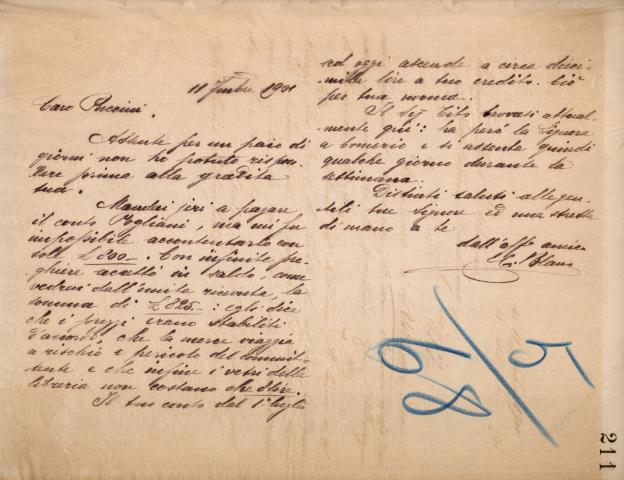 11 7mbre 1901
Caro Puccini,
Assente per un paio di
giorni non ho potuto rispon-
dere prima alla gradita
tua.
Mandai jeri a pagare
il conto Pogliani, ma mi fu
impossibile accontentarlo con
sole £ 800 —. Con infinite pre-
ghiere accettò in saldo, come
vedrai dall'unita ricevuta, la
somma di £ 825 — : egli dice
che i prezzi erano stabiliti
d'accordo, che la merce viaggia
a rischio e pericolo del commit-
tente e che infine i vetri della
libreria non costano che 8 lire.
Il tuo conto dal 1° luglio
ad oggi ascende a circa dieci-
mille lire a tuo credito. Ciò
per tua norma.
Il Sig Tito trovasi attual-
mente qui: ha però la Signora
a Comerio e si assenta quindi
qualche giorno durante la
settimana.
Distinti saluti alle gen-
tili tue Signore ed una stretta
di mano a te
dall'aff amico
C. Blanc
5/68
211